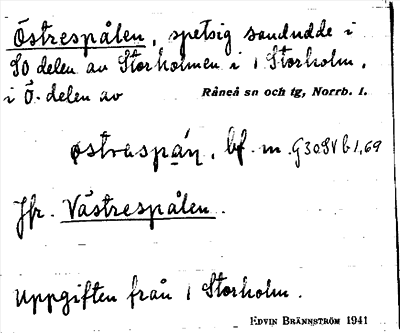 Östrespålen, spetsig sandudde i
SO delen av Storholmen i 1 Storholm,
i Ö. delen av Råneå sn och tg, Norrb. l.
bf. m. G30SV b 1,69
Jfr. Västrespålen.
Uppgiften från 1 Storholm.
EDVIN BRÄNNSTRÖM 1941